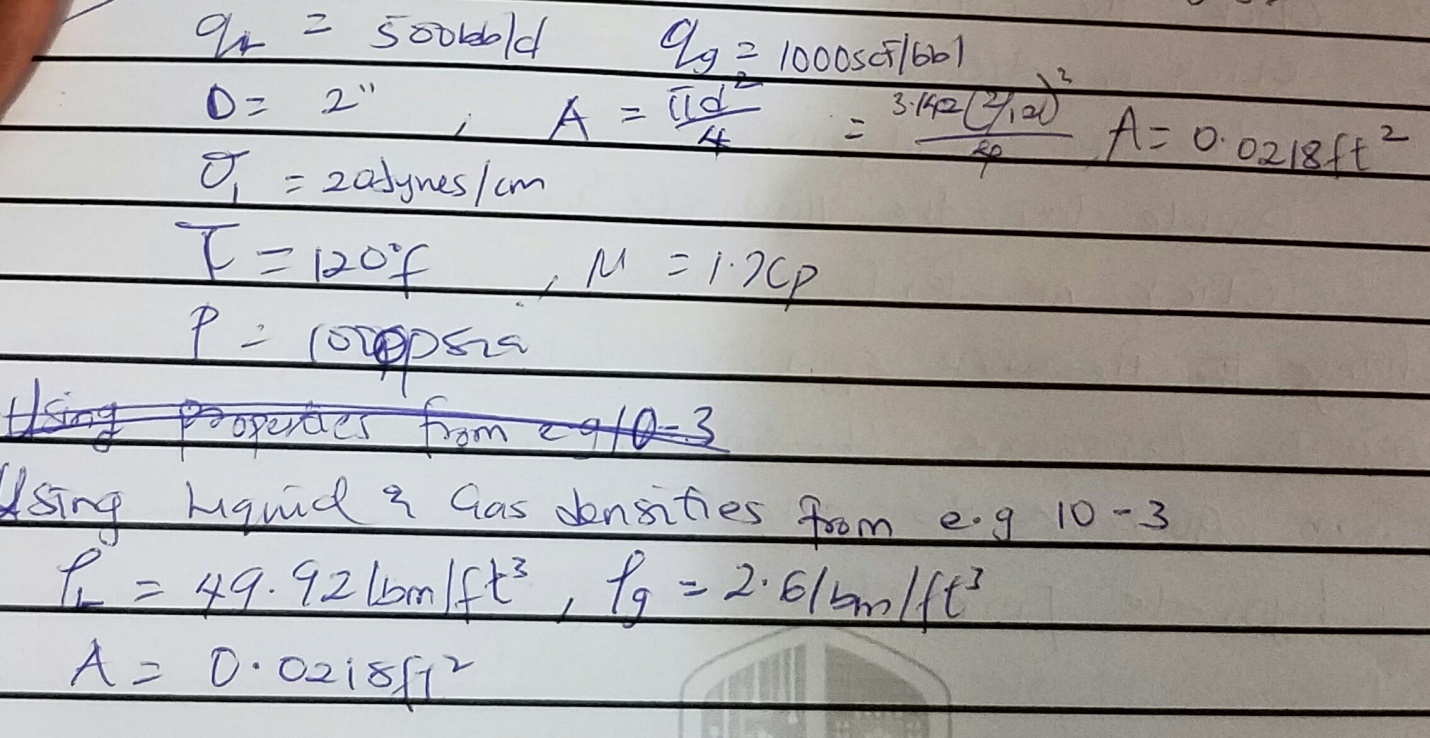 qL = 500bbl/d qg = 1000scf/bbl
D = 2" , A = πd²/4 = 3.142(2/12)²/4 A = 0.0218ft²
σ₁ = 20dynes/cm
T = 120°f , μ = 1.7cp
P = 1000psia
Using properties from eg 10-3
Using Liquid & Gas densities from e.g 10-3
ρL = 49.92lbm/ft³, ρg = 2.6lbm/ft³
A = 0.0218ft²